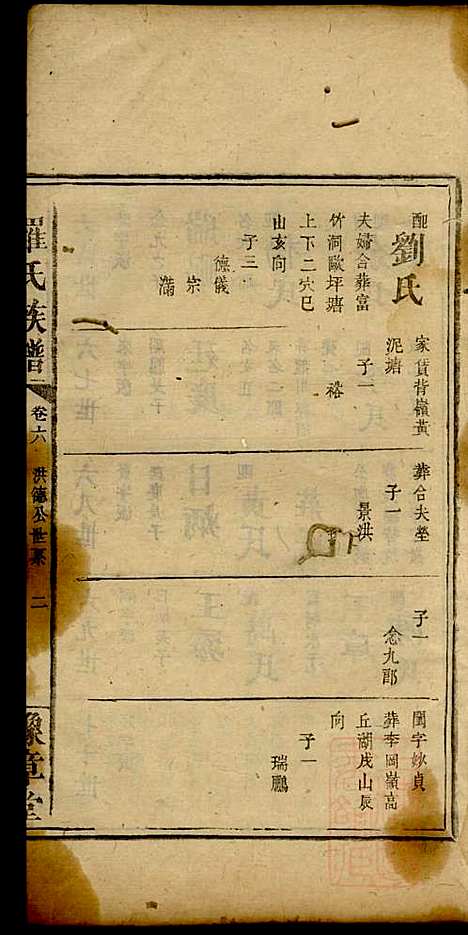 配劉氏
夫婦合葬富
竹洞歐坪塘
上下二穴巳
山亥向
子三
德儀
宗
滿
家賃背嶺黃
泥塘
子一
裕
葬合夫塋
子一
景洪
子一
念九郎
閨字妙貞
葬李岡嶺高
丘湖戌山辰
向
子一
瑞鵬
羅氏族譜
卷六
洪德公世系
二
豫章堂